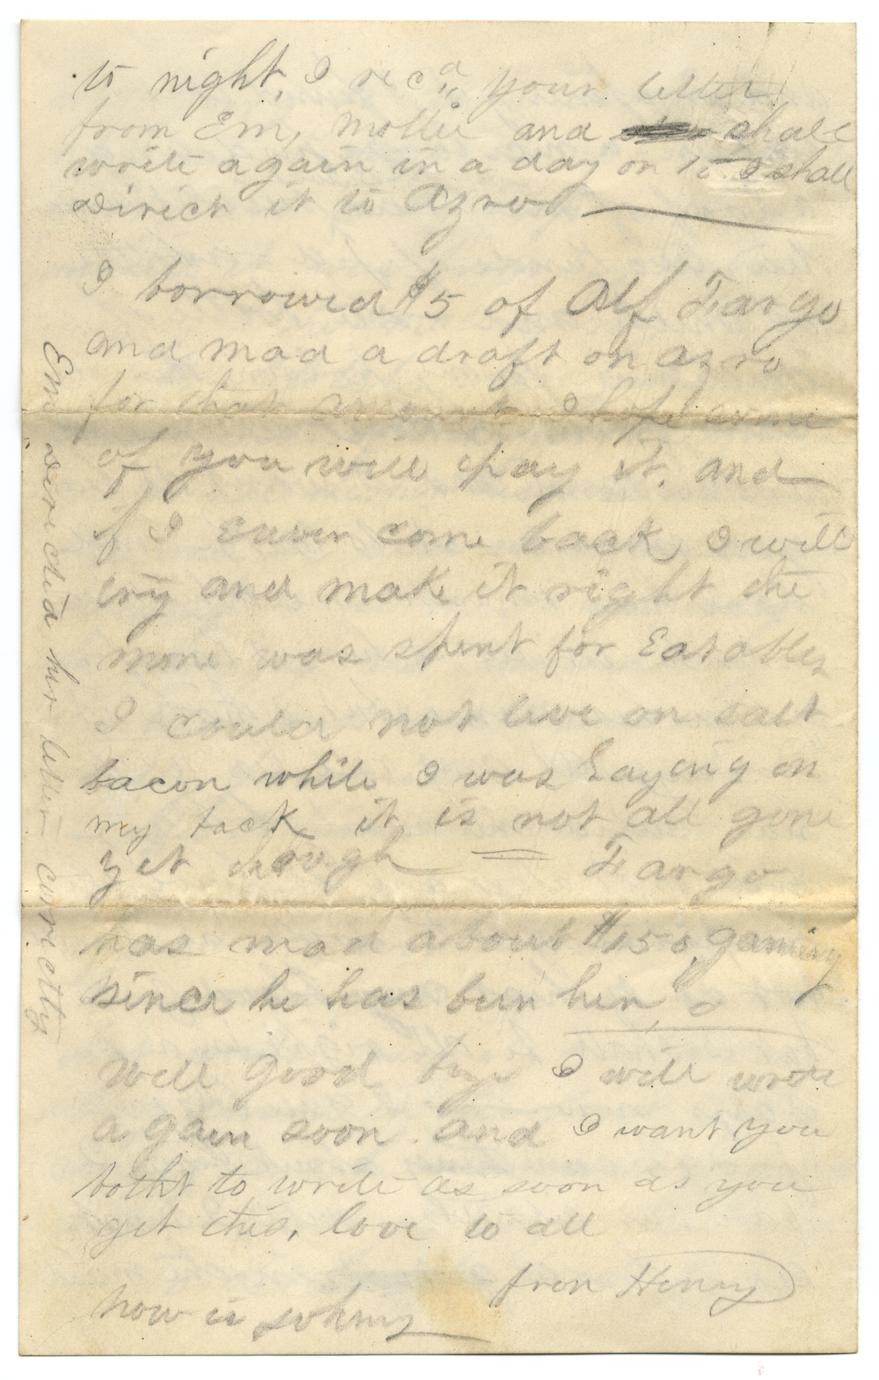 to night, I recd, your letter
from Em, Mollie and shall
write again in a day or to I shall
Direct it to Azro
I borrowed $5 of Alf Fargo
and mad a draft on azro
for that amount I hope some
of you will pay it. and
if I euver come back I will
try and make it right the
mone was spent for Eatables
I could not live on salt
bacon while I was Laying on
my back it is not all gone
yet though = Fargo
has mad about $150, gaming
since he has bun her,
Well good bye I will write
again soon. and I want you
botht to write as soon as you
get this, love to all
from Henry
how is Johny
Em directed her letter currectty